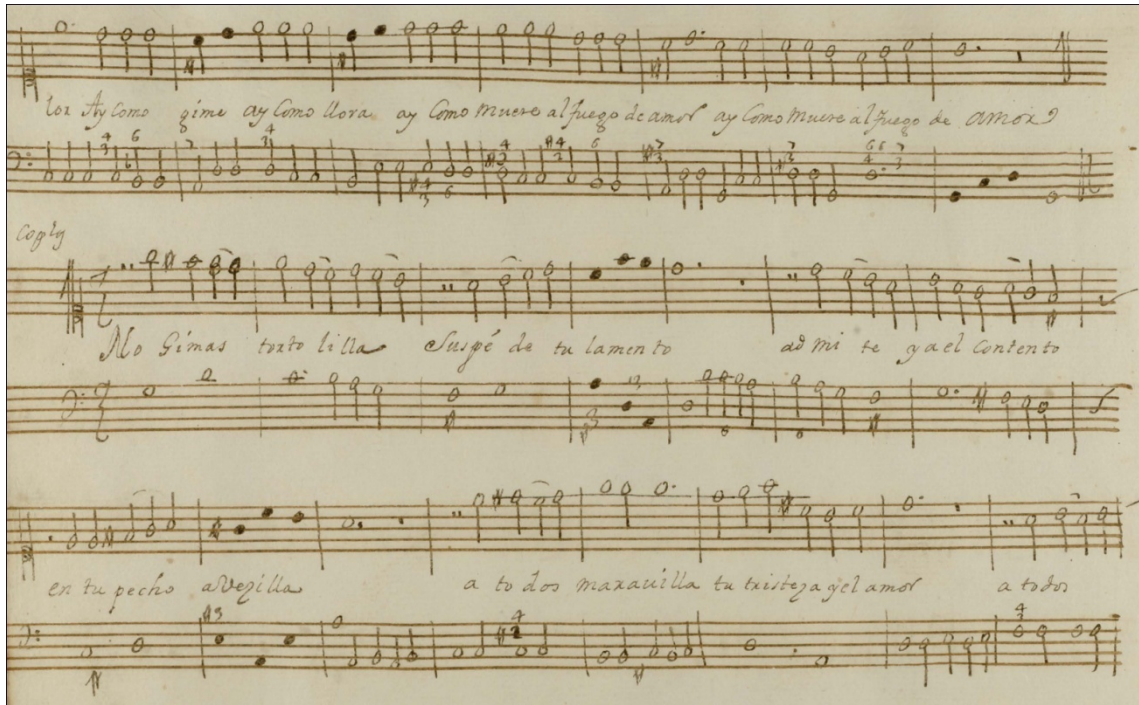 lor Ay Como gime ay Como llora ay Como Muere al fuego de amor ay Como Muere al fuego de amor
Coplas
No Gimas torto lilla Suspé de tu lamento ad mi te ya el Contento
en tu pecho avezilla a to dos maravilla tu tristeza y el amor a todos